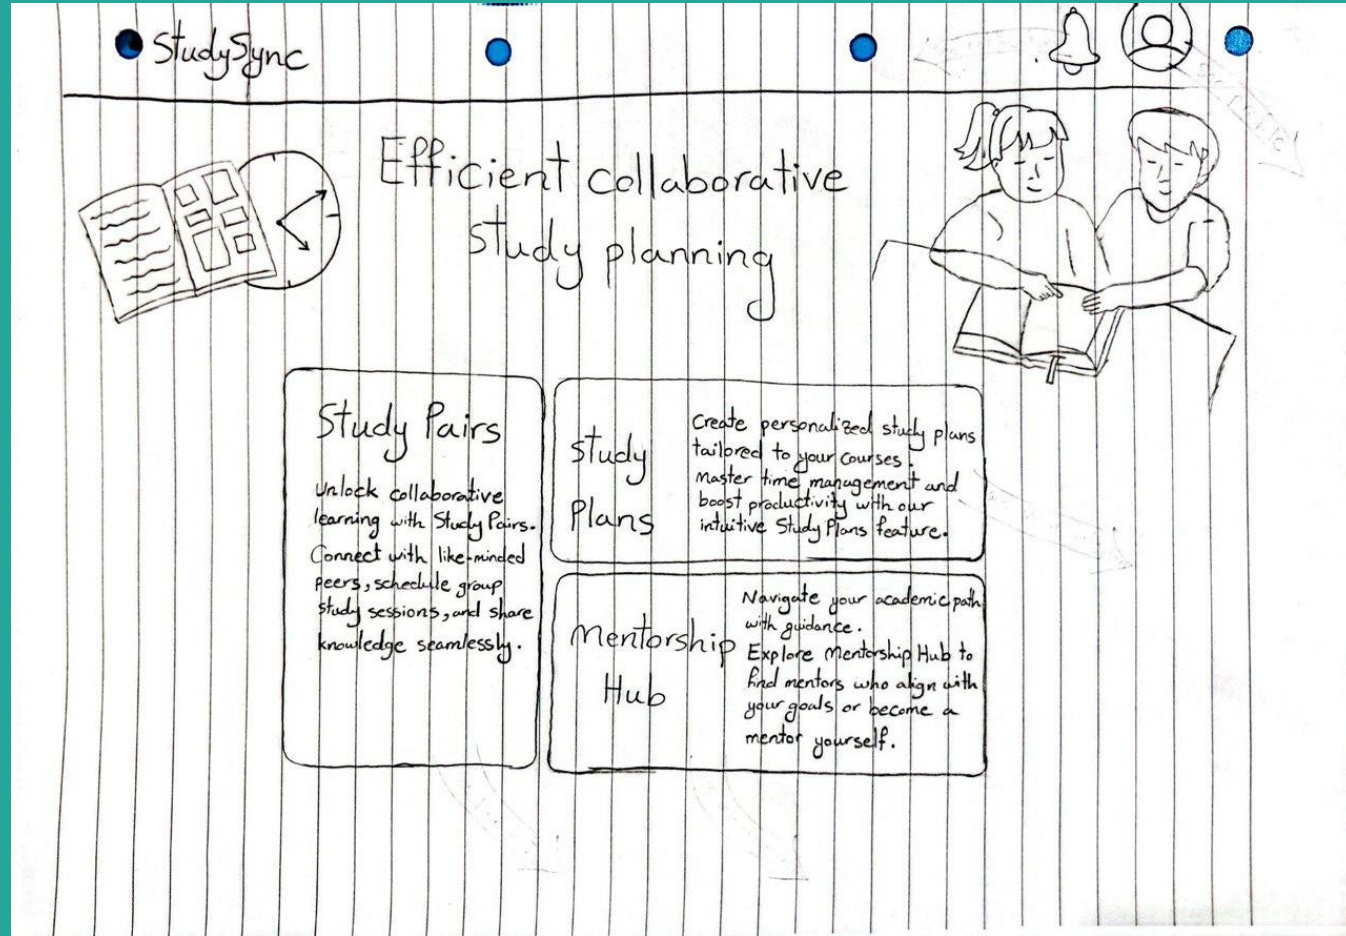 StudySync
Efficient collaborative
study planning
Study Pairs
Unlock collaborative
learning with Study Pairs.
Connect with like-minded
peers, schedule group
study sessions, and share
knowledge seamlessly.
Study
Plans
Create personalized study plans
tailored to your courses.
Master time management and
boost productivity with our
intuitive Study Plans feature.
Mentorship
Hub
Navigate your academic path
with guidance.
Explore Mentorship Hub to
find mentors who align with
your goals or become a
mentor yourself.